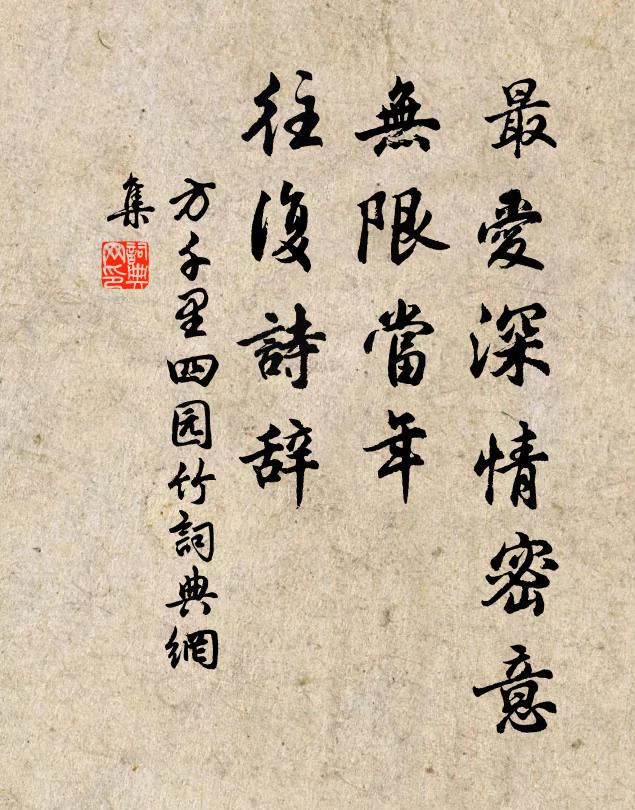 最愛深情密意
無限當年
往復詩辞
方千里四园竹詞典網
集
詞典
网印